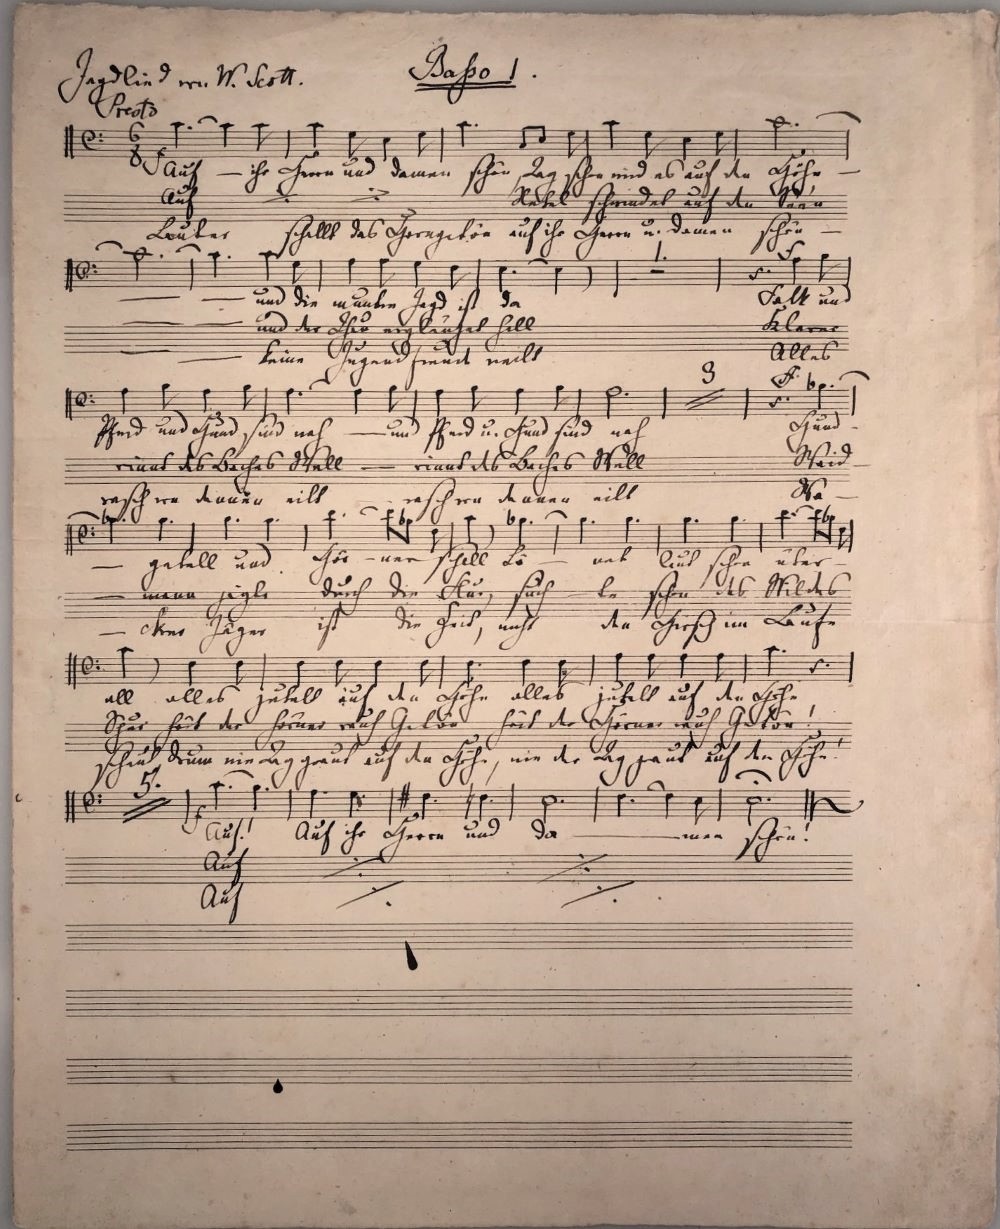 Jagdlied von W. Scott.
Baßo 1.
Presto
6
8
f Auf — ihr Herrn und damen schön, Tag schon wird es auf den Höhn —
Auf Nebel schwindet auf den Seen
Lauter schallt das Horngetön auf ihr Herrn u. damen schön —
1.
und die muntre Jagd ist da Falk und
und der Thau erglänzet hell Klarer
keine Jugendfreud weilt Alles
3
Pferd und Hund sind nah — und Pferd u. Hund sind nah Hund-
rinnt des Baches Well — rinnt des Baches Well Waid-
rasch von dannen eilt rasch von dannen eilt Wa-
— gebell und Hör-ner schall tö — net laut schon über-
— mann jagte durch die Flur, such — te schon des Wildes
— ckrer Jäger ist die Zeit, nicht den Hirsch im Laufe
all alles jubelt auf den Höhn alles jubelt auf den Höhn
Spur hört der Hörner auch Getön hört der Hörner auch Getön!
scheut, drum nie Tag graut auf den Höhn, nie der Tag graut auf den Höhn!
5.
f Auf! Auf ihr Herrn und da — men schön!
Auf
Auf